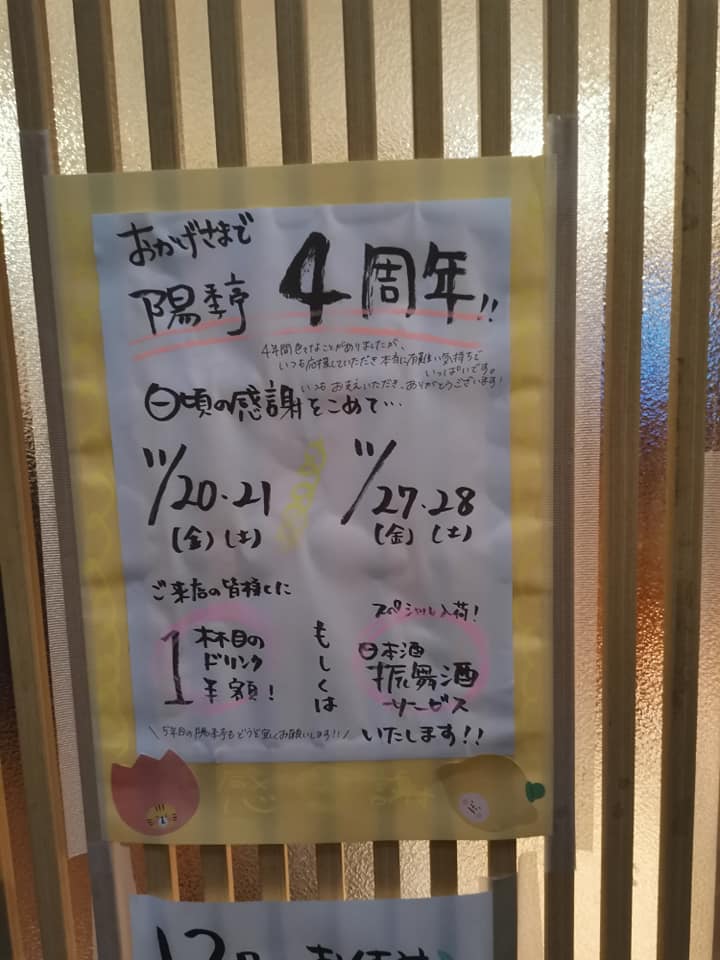 おかげさまで
陽季亭 4周年!!
4年間色々なことがありましたが、
いつも応援していただき本当に有難い気持ちで
いっぱいです。
いつもお支えいただき、ありがとうございます!
日頃の感謝をこめて…
11/20・21 11/27・28
(金)(土) (金)(土)
ご来店の皆様に
1杯目の
ドリンク
半額!
もしくは
スペシャル入荷!
日本酒
振舞酒
サービス
いたします!!
\5年目の陽季亭もどうぞ宜しくお願いします!!/
12月